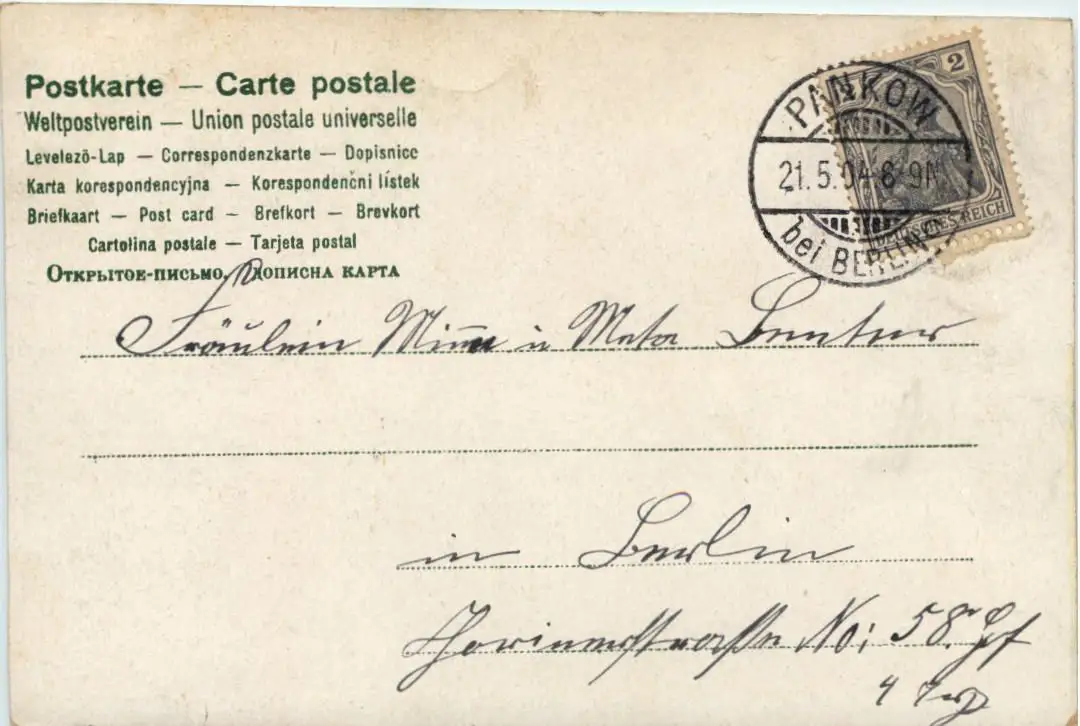 Postkarte — Carte postale
Weltpostverein — Union postale universelle
Levelezö-Lap — Correspondenzkarte — Dopisnice
Karta korespondencyjna — Korespondenčni lístek
Briefkaart — Post card — Brefkort — Brevkort
Cartolina postale — Tarjeta postal
Открытое-письмо, Дописна карта
2
DEUTSCHES REICH
PANKOW
21.5.04 8-9N
bei BERLIN
Fräulein Minna u Meta
in Berlin
Thorinerstraße No: 58. Hof
4